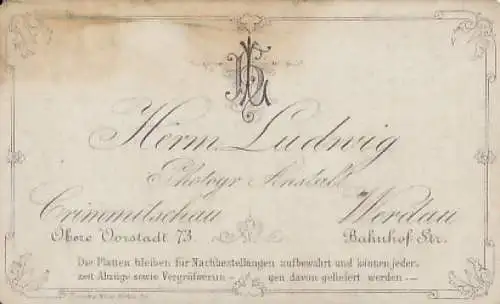 HL
Herm. Ludwig
Photogr Anstalt
Crimmitschau Werdau
Obere Vorstadt 73. Bahnhof Str.
Die Platten bleiben für Nachbestellungen aufbewahrt und können jeder-
zeit Abzüge sowie Vergröfserun - gen davon geliefert werden